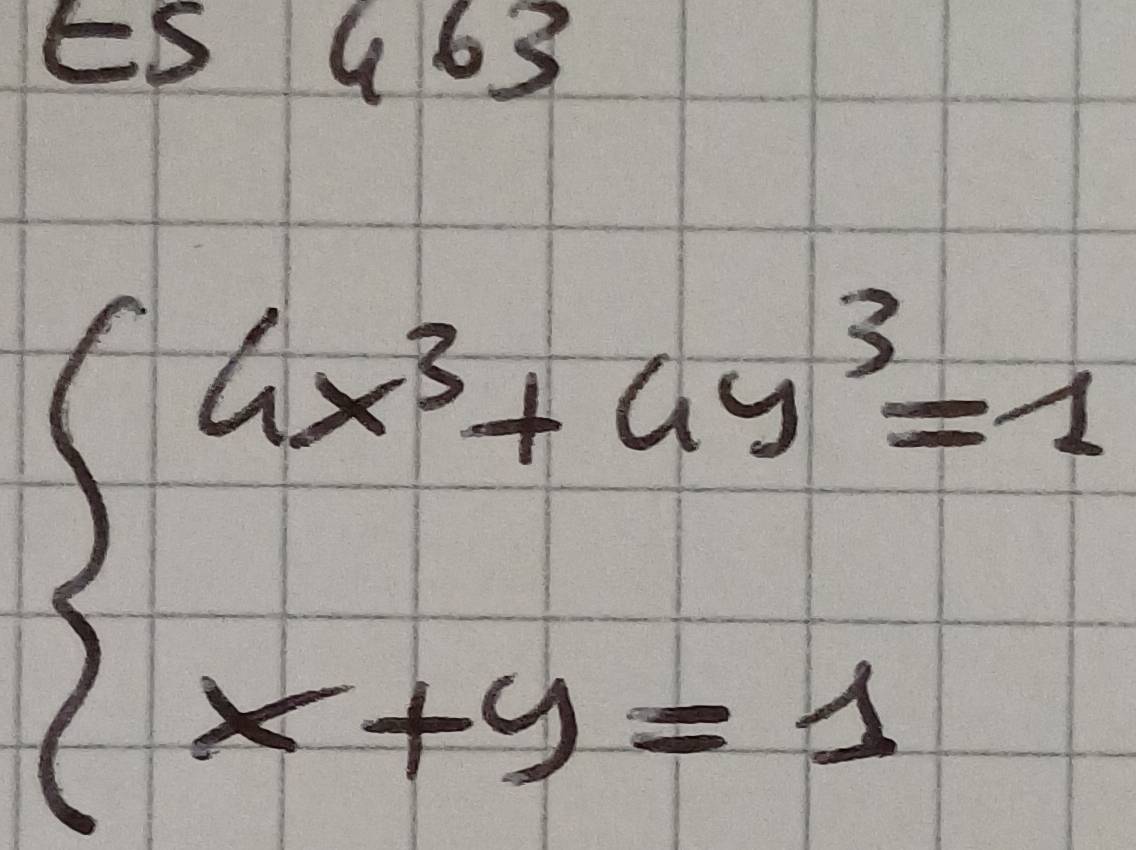 ES 463
4x³+4y³=1
x+y=1